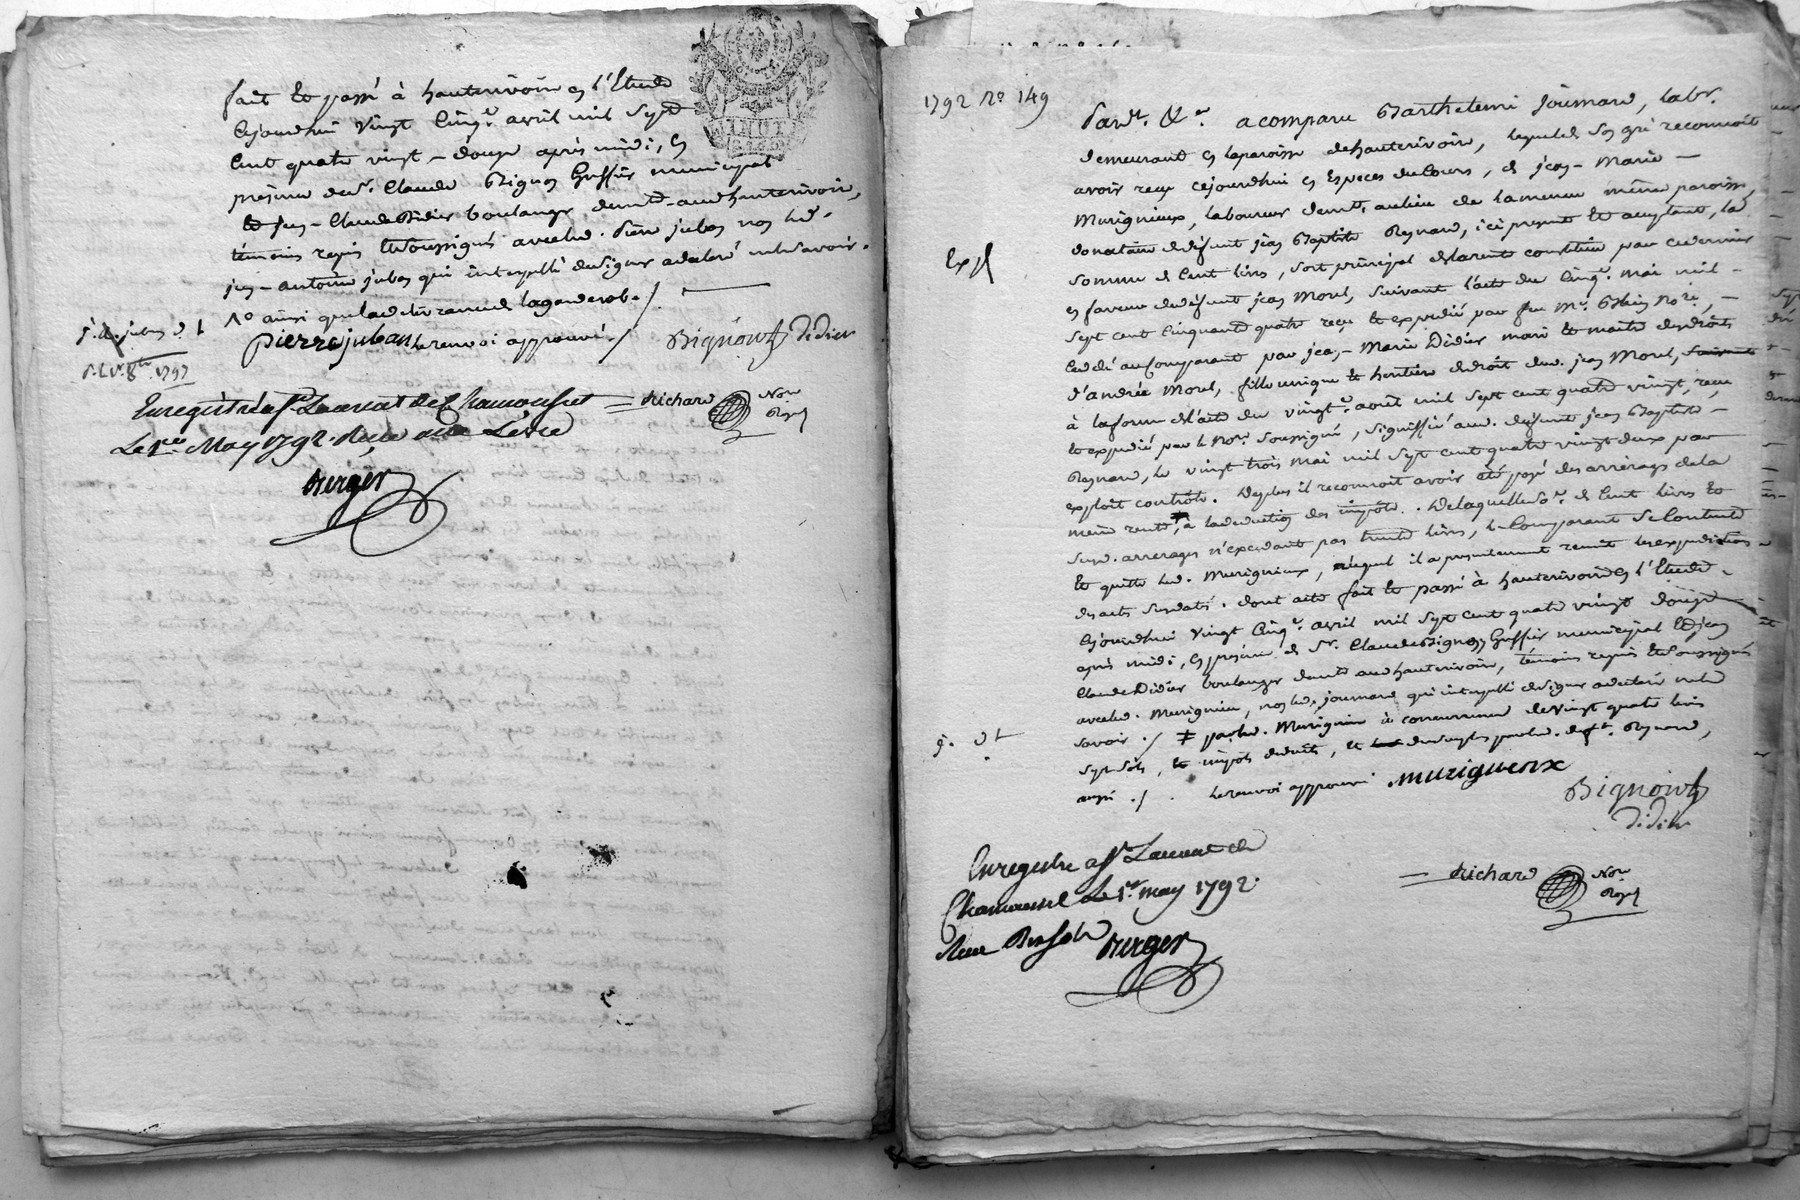 fait et passé à hauterivoire en l'Etude
cejourdhui vingt cinqe. avril mil sept
cent quatre vingt-douze après midi, en
présence de sr. Claude Bignon Greffier municipal
et jean-Claude Didier boulanger demt. aud. hauterivoire,
témoins requis et soussignés avec led. Pierre juban non led.
jean-antoine juban qui interpellé de signer a déclaré ne le savoir.
pierre juban le renvoi approuvé ./ Bignon Didier
Enregistré à St. Laurent de Chamousset
Le 1er May 1792. Reçu
Berger
richard Nore Royal
1792 No 149
Pardt. &a. a comparu Barthelemi joumard, labr.
demeurant en la paroisse de hauterivoire, lequel de son gré reconnoit
avoir reçu cejourdhui en Especes de Cours, de jean-Marie
Murigneux, laboureur demt. au lieu de la même paroisse,
donataire de défunt jean Baptiste Reynard, ici présent et acceptant, la
Expé
somme de Cent livres, sort principal de la rente constituée par ce dernier
en faveur de défunt jean Morel, suivant l'acte du cinqe. mai mil
sept cent cinquante quatre reçu et expédié par feu Me. Blein nore,
cédé au Comparant par jean-Marie Didier mari et maitre des droits
d'andrée Morel, fille unique et heritiere de droit dud. jean Morel, suivant
à la forme de l'acte du vingte. août mil sept cent quatre vingt, reçu
et expédié par le nore. soussigné, signiffié aud. défunt jean Baptiste
Reynard, le vingt trois mai mil sept cent quatre vingt deux par
exploit controlé. De plus il reconnoit avoir été payé des arrérages de la
même rente, ‡ à la déduction des impôts. De laquelle se. de Cent livres et
susd. arrerages n'excédant pas trente livres, le Comparant se Contente
et quitte led. Murigneux, auquel il a présentement remis les expéditions
des actes susdatés. dont acte fait et passé à hauterivoire en l'Etude
cejourdhui vingt cinqe. avril mil sept cent quatre vingt douze
après midi, en présence de sr. Claude Bignon Greffier municipal et jean
Claude Didier boulanger demt. aud. hauterivoire, témoins requis et soussignés
avec led. Murigneux, non led. joumard qui interpellé de signer a déclaré ne le
savoir ./ ‡ par led. Murigneux à concurrence de vingt quatre livres
sept sols, et impôts déduits, et du surplus par led. deft. Reynard,
aussi ./. le renvoi approuvé murigneux
Bignon
Didier
Enregistré à St Laurent de
Chamousset Le 1er may 1792.
Berger
richard Nore Royal